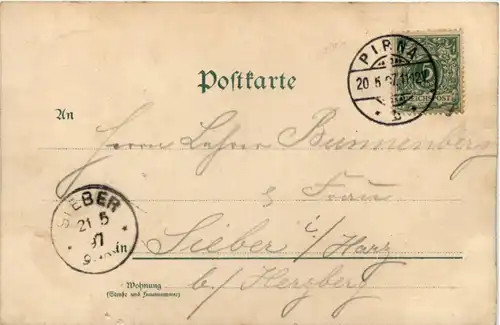 PIRNA
20 5 97 11-12V
* b
5
REICHSPOST
Postkarte
An
Herrn Lehrer Bunnenberg
& Frau
SIEBER
21 5
97
in Sieber i/Harz
b/ Herzberg
Wohnung
(Straße und Hausnummer)